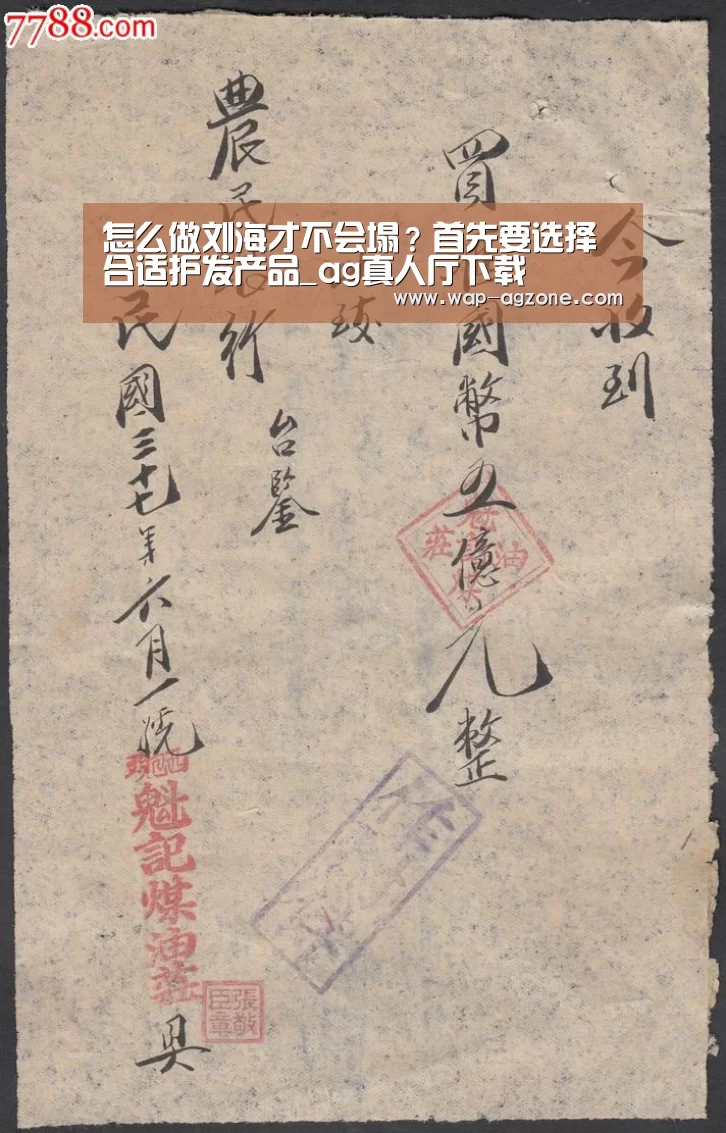 7788.com
怎么做刘海才不会塌？首先要选择
合适护发产品_ag真人厅下载
www.wap-agzone.com
今收到
買國幣五億元整
致
台鑒
農民行
民國三十七年六月一號
魁記煤油莊
具
張敬
臣章
油莊